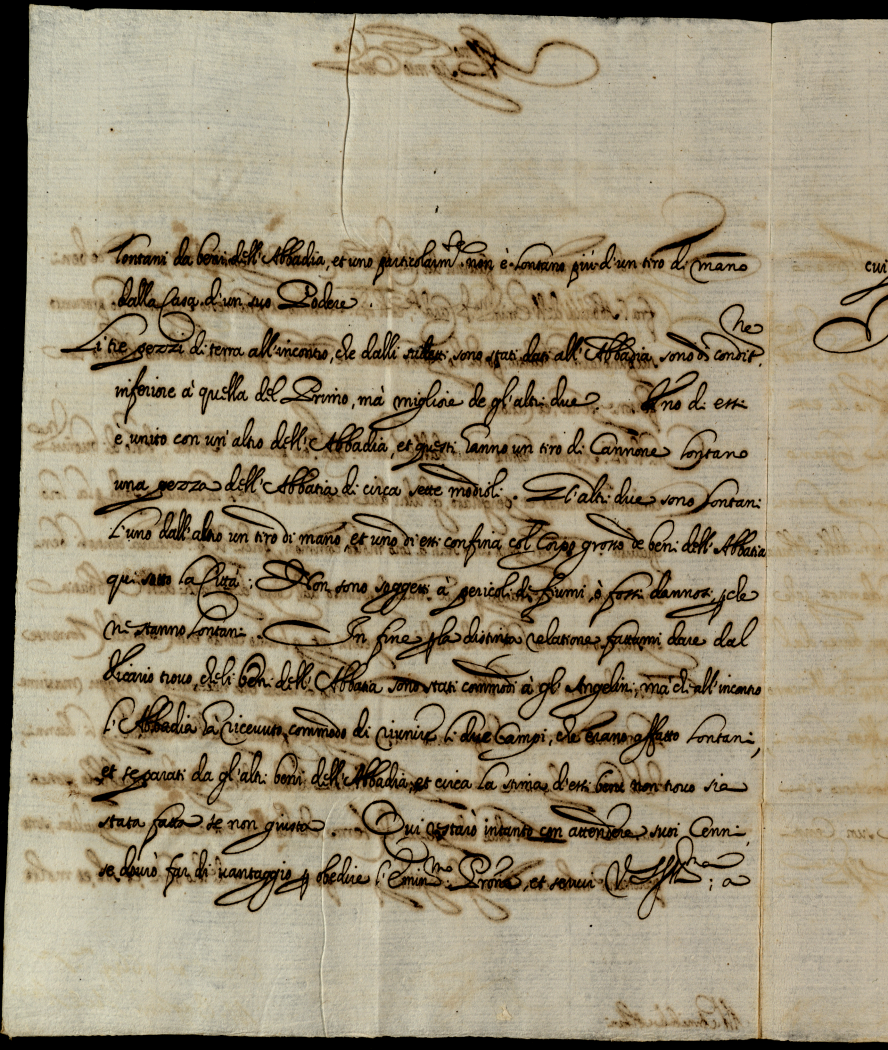 lontani da beni dell'Abbadia, et uno particolarm.te non è lontano più d'un tiro di mano
dalla Casa d'un suo Podere.
Li tre pezzi di terra all'incontro, che dalli sudetti sono stati dati all'Abbadia, sono di condit.ne
inferiore à quella del Primo, mà migliore de gl'altri due. Uno di essi
è unito con un'altro dell'Abbadia, et questi hanno un tiro di Cannone lontano
una pezza dell'Abbatia di circa sette modioli. Gl'altri due sono lontani
l'uno dall'altro un tiro di mano, et uno di essi confina col Corpo grosso de beni dell'Abbatia
qui sotto la Città: Non sono soggetti à pericoli di fiumi, ò fossi dannosi, p che
ne stanno lontani. In fine p la distinta relatione fattami dare dal
Vicario trovo, che li beni dell'Abbatia sono stati commodi à gl'Angelini, mà ch'all'incontro
l'Abbadia hà ricevuto commodo di riunire li due Campi, che erano affatto lontani,
et separati da gl'altri beni dell'Abbadia, et circa la stima d'essi beni non trovo sia
stata fatta se non giusta. Qui restarò intanto con attendere suoi Cenni,
se dovrò far di vantaggio p obedire l'Emin.mo Prone, et servir V. S. Ill.ma; a
cui